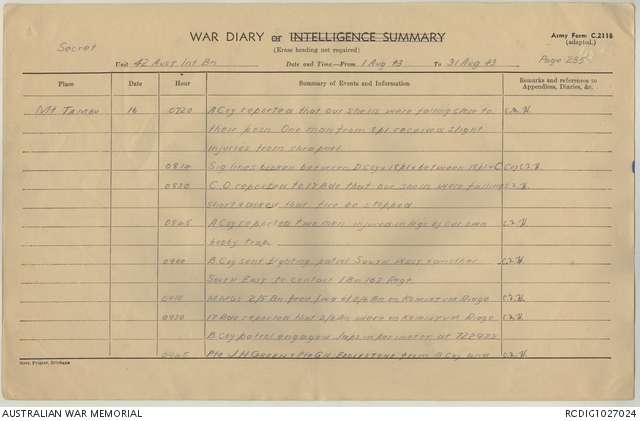 WAR DIARY or INTELLIGENCE SUMMARY
(Erase heading not required)
Army Form C.2118
(adapted.)
Secret
Unit 42 Aust Inf Bn Date and Time—From 1 Aug 43 To 31 Aug 43 Page 235
Place Date Hour Summary of Events and Information Remarks and references to Appendices, Diaries, &c.
Mt TAMBU 16 0720 A Coy reported that our shells were falling close to
their posn. One man from 8pl received slight
injuries from shrapnel.
0810 Sig lines broken between D Coy & 18pl & between 18pl & C Coy
0830 C.O reported to 17 Bde that our shells were falling
short & asked that fire be stopped
0845 A Coy reported two men injured in legs by our own
booby trap.
0900 B Coy sent fighting patrol South West & another
South East to contact 1 Bn 162 Regt
0910 2/5 Bn 2/6 Bn on KOMIATUM Ridge
0930 17 Bde reported that 2/6 Bn were on KOMIATUM Ridge
B Coy patrol engaged Japs in perimeter at
0945 Pte J.H GREEN & Pte from B Coy and
Govt. Printer, Brisbane
AUSTRALIAN WAR MEMORIAL
RCDIG1027024